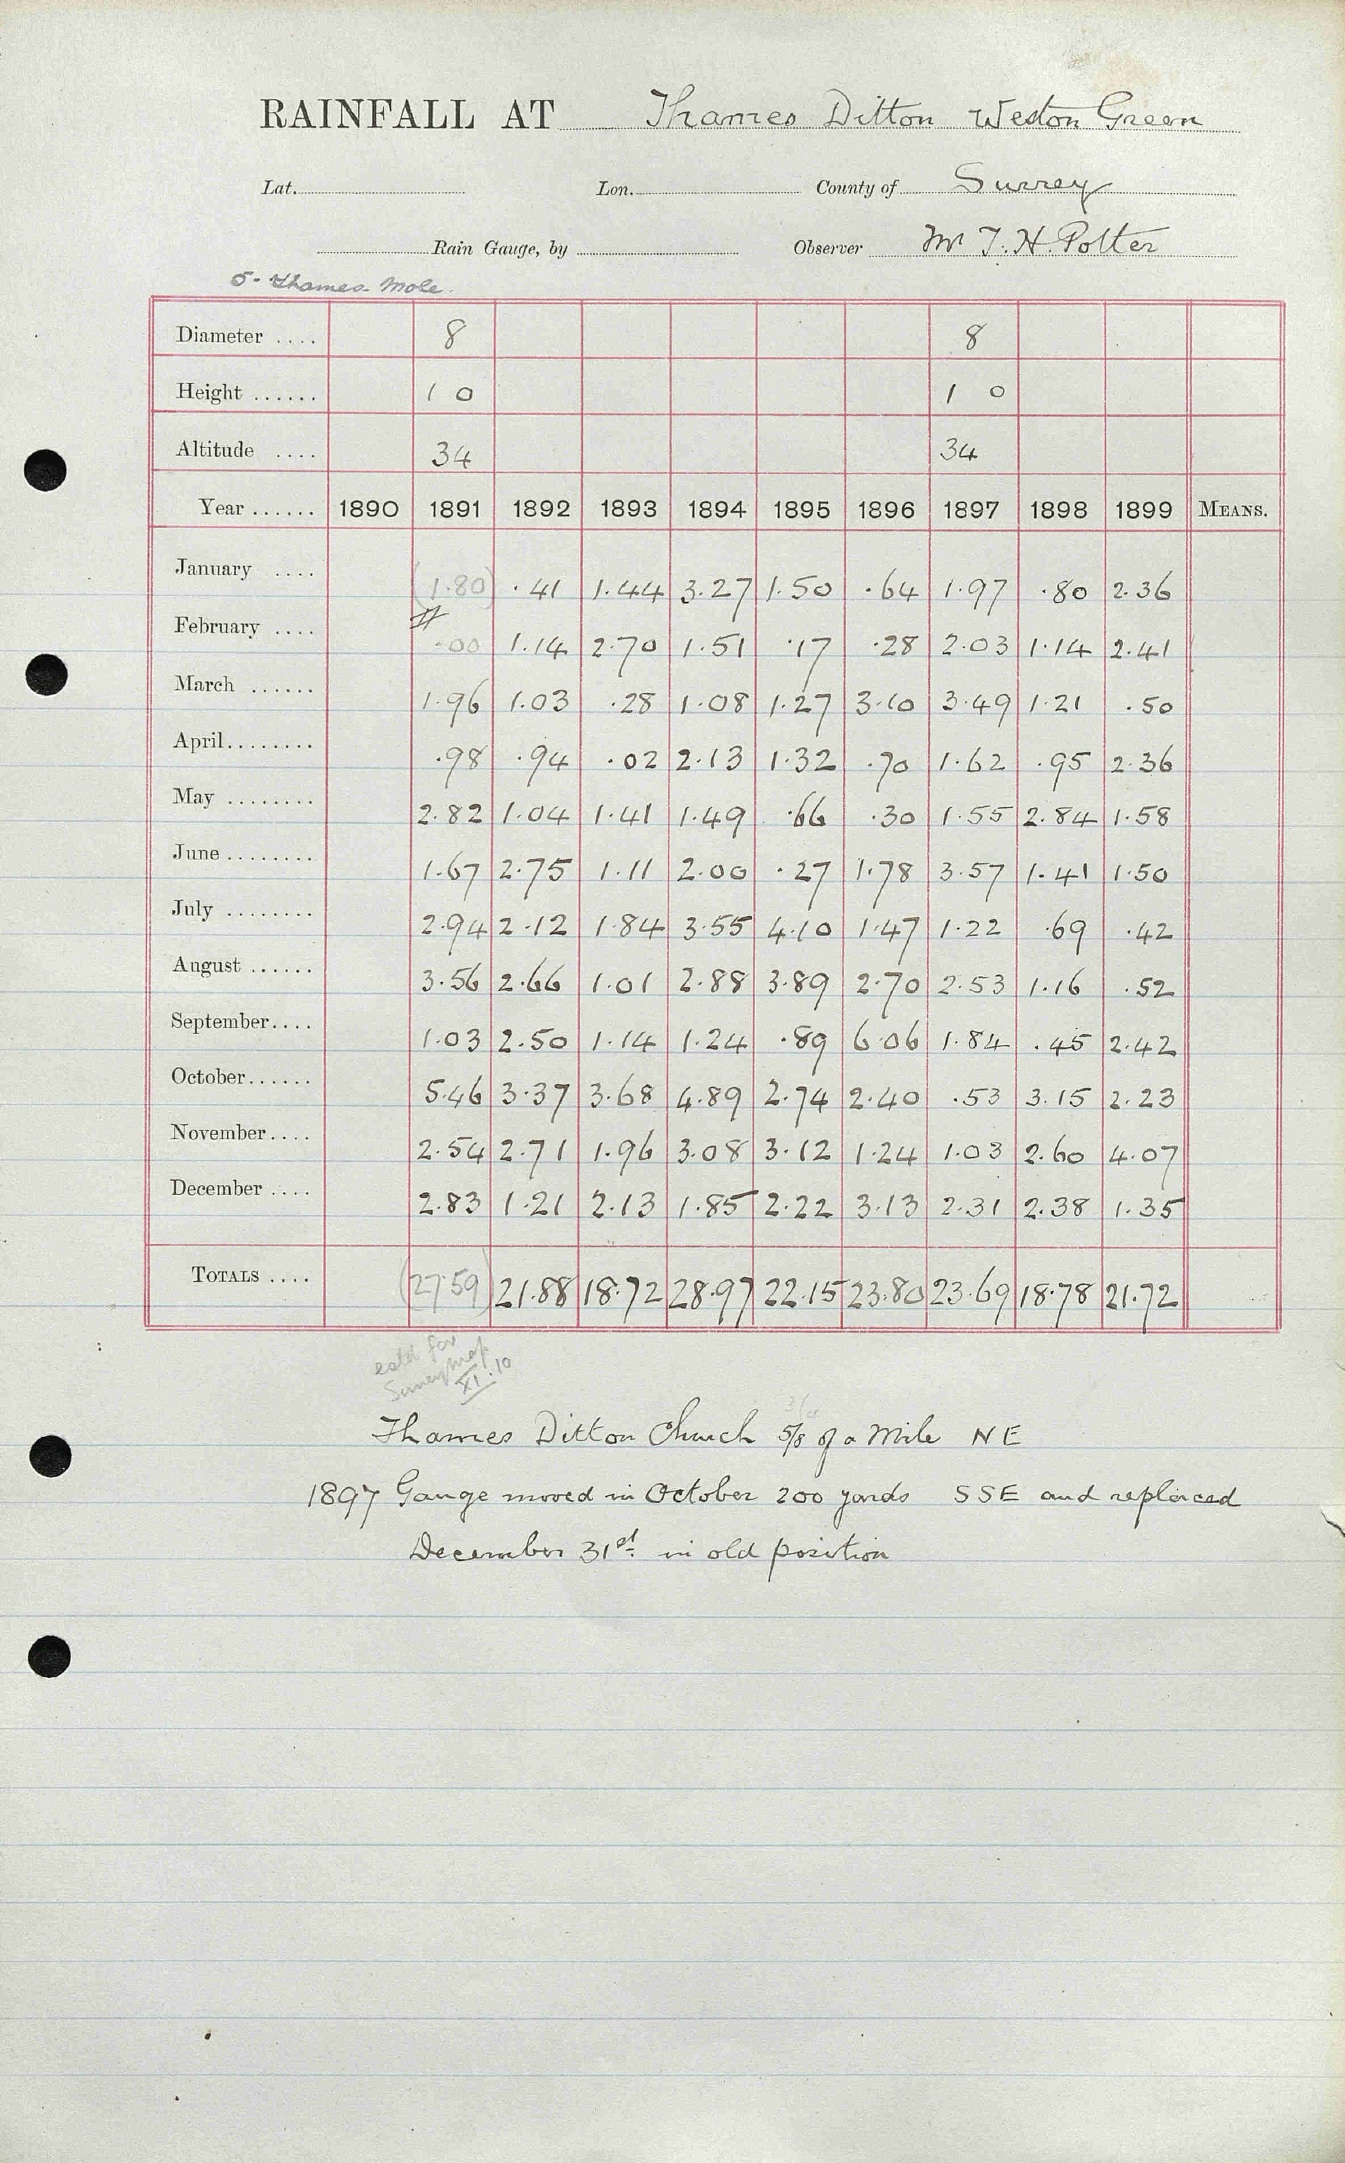 RAINFALL AT Thames Ditton Weston Green
Lat. Lon. County of Surrey
Rain Gauge, by Observer Mr T. H. Potter
5- Thames-Mole.
Diameter .... 8 8
Height ...... 1 0 1 0
Altitude .... 34 34
Year ...... 1890 1891 1892 1893 1894 1895 1896 1897 1898 1899 MEANS.
January .... (1.80) .41 1.44 3.27 1.50 .64 1.97 .80 2.36
February .... .00 1.14 2.70 1.51 .17 .28 2.03 1.14 2.41
March ...... 1.96 1.03 .28 1.08 1.27 3.10 3.49 1.21 .50
April........ .98 .94 .02 2.13 1.32 .70 1.62 .95 2.36
May ........ 2.82 1.04 1.41 1.49 .66 .30 1.55 2.84 1.58
June ........ 1.67 2.75 1.11 2.00 .27 1.78 3.57 1.41 1.50
July ........ 2.94 2.12 1.84 3.55 4.10 1.47 1.22 .69 .42
August ...... 3.56 2.66 1.01 2.88 3.89 2.70 2.53 1.16 .52
September.... 1.03 2.50 1.14 1.24 .89 6.06 1.84 .45 2.42
October...... 5.46 3.37 3.68 4.89 2.74 2.40 .53 3.15 2.23
November.... 2.54 2.71 1.96 3.08 3.12 1.24 1.03 2.60 4.07
December .... 2.83 1.21 2.13 1.85 2.22 3.13 2.31 2.38 1.35
TOTALS .... (27.59) 21.88 18.72 28.97 22.15 23.80 23.69 18.78 21.72
estd for
Surrey map
XI.10
Thames Ditton Church 5/8 of a Mile NE
1897 Gauge moved in October 200 yards SSE and replaced
December 31st. in old position